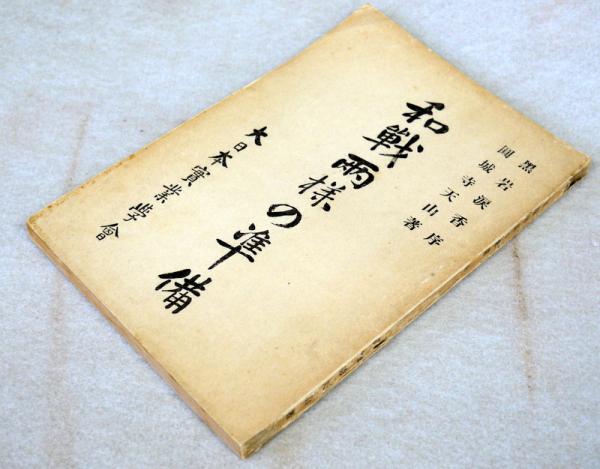 黑岩淚香序
圓城寺天山著
和戰兩様の準備
大日本實業學會